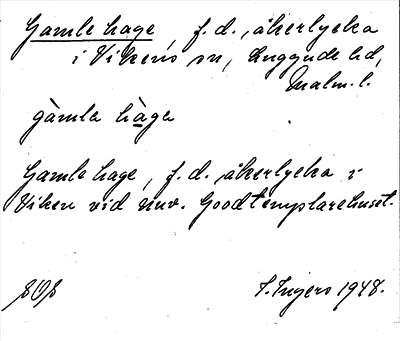 Gamle hage, f.d. åkerlycka
i Vikens sn, Luggude hd,
Malm. l.
gàmla hàga
Gamle hage, f.d. åkerlycka i
Viken vid nuv. Goodtemplarehuset.
I. Ingers 1948.